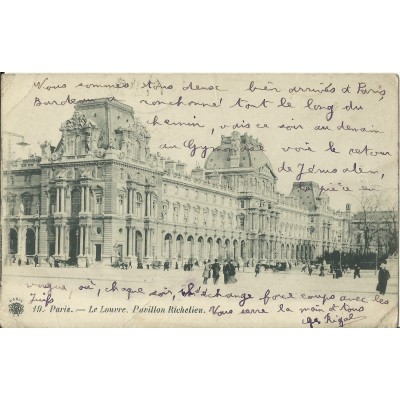 Vous sommes tous deux bien arrivés à Paris,
Bordeaux ronchonne tout le long du
chemin, vais ce soir au demain
au Gymnase voir le retour
de Jérusalem,
la pièce en
vogue où, chaque soir, on échange force coups avec les
Juifs
Vous serre la main à tous
Rigal
PARIS
19. Paris. — Le Louvre. Pavillon Richelieu.